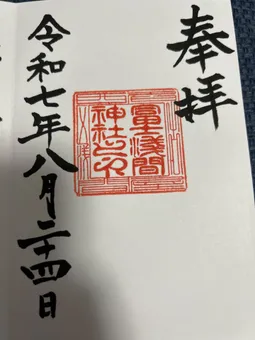 奉拝
富士浅間
神社之印
令和七年八月二十四日